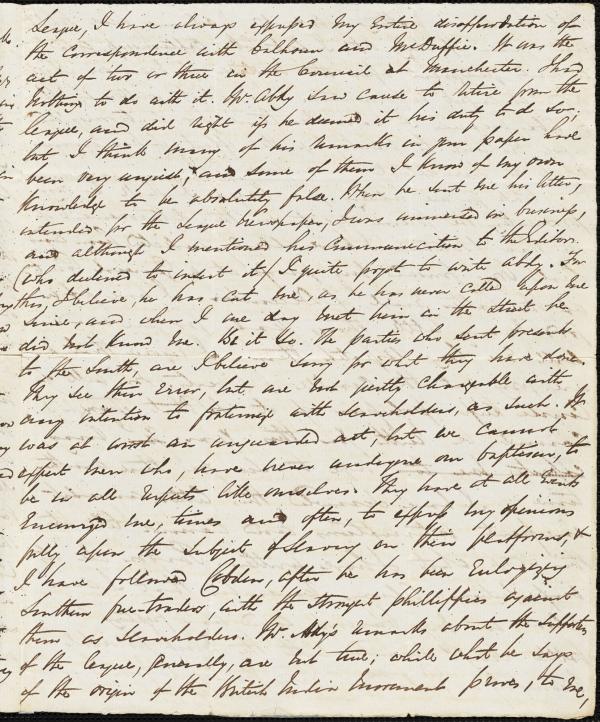 League, I have always expressed my entire disapprobation of
the correspondence with Calhoun and McDuffie. It was the
act of two or three in the Council at Manchester. I had
nothing to do with it. Mr. Abdy saw cause to retire from the
League, and did right if he deemed it his duty to do so;
but I think many of his remarks in your paper have
been very unjust, and some of them I know of my own
Knowledge to be absolutely false. When he sent me his letter,
intended for the League Newspaper, I was immersed in business,
and although I mentioned his communication to the Editor
(who declined to insert it) I quite forgot to write Abdy. For
this, I believe, he has cut me, as he has never called upon me
since, and when I one day met him in the street he
did not know me. Be it so. The parties who sent presents
to the South, are I believe sorry for what they have done.
They see their error, but are not justly chargeable with
any intention to fraternize with slaveholders, as such. It
was at worst an unguarded act, but we cannot
expect men who, have never undergone our baptism, to
be in all respects like ourselves. They have at all events
encouraged me, times and often, to express my opinions
fully upon the subject of Slavery on their platforms, &
I have followed Cobden, after he has been eulogizing
Southern free-traders, with the strongest phillippics against
them as slaveholders. Mr. Abdy's remarks about the supporters
of the League, generally, are not true; while what he says
of the origin of the British India movement proves, to me,